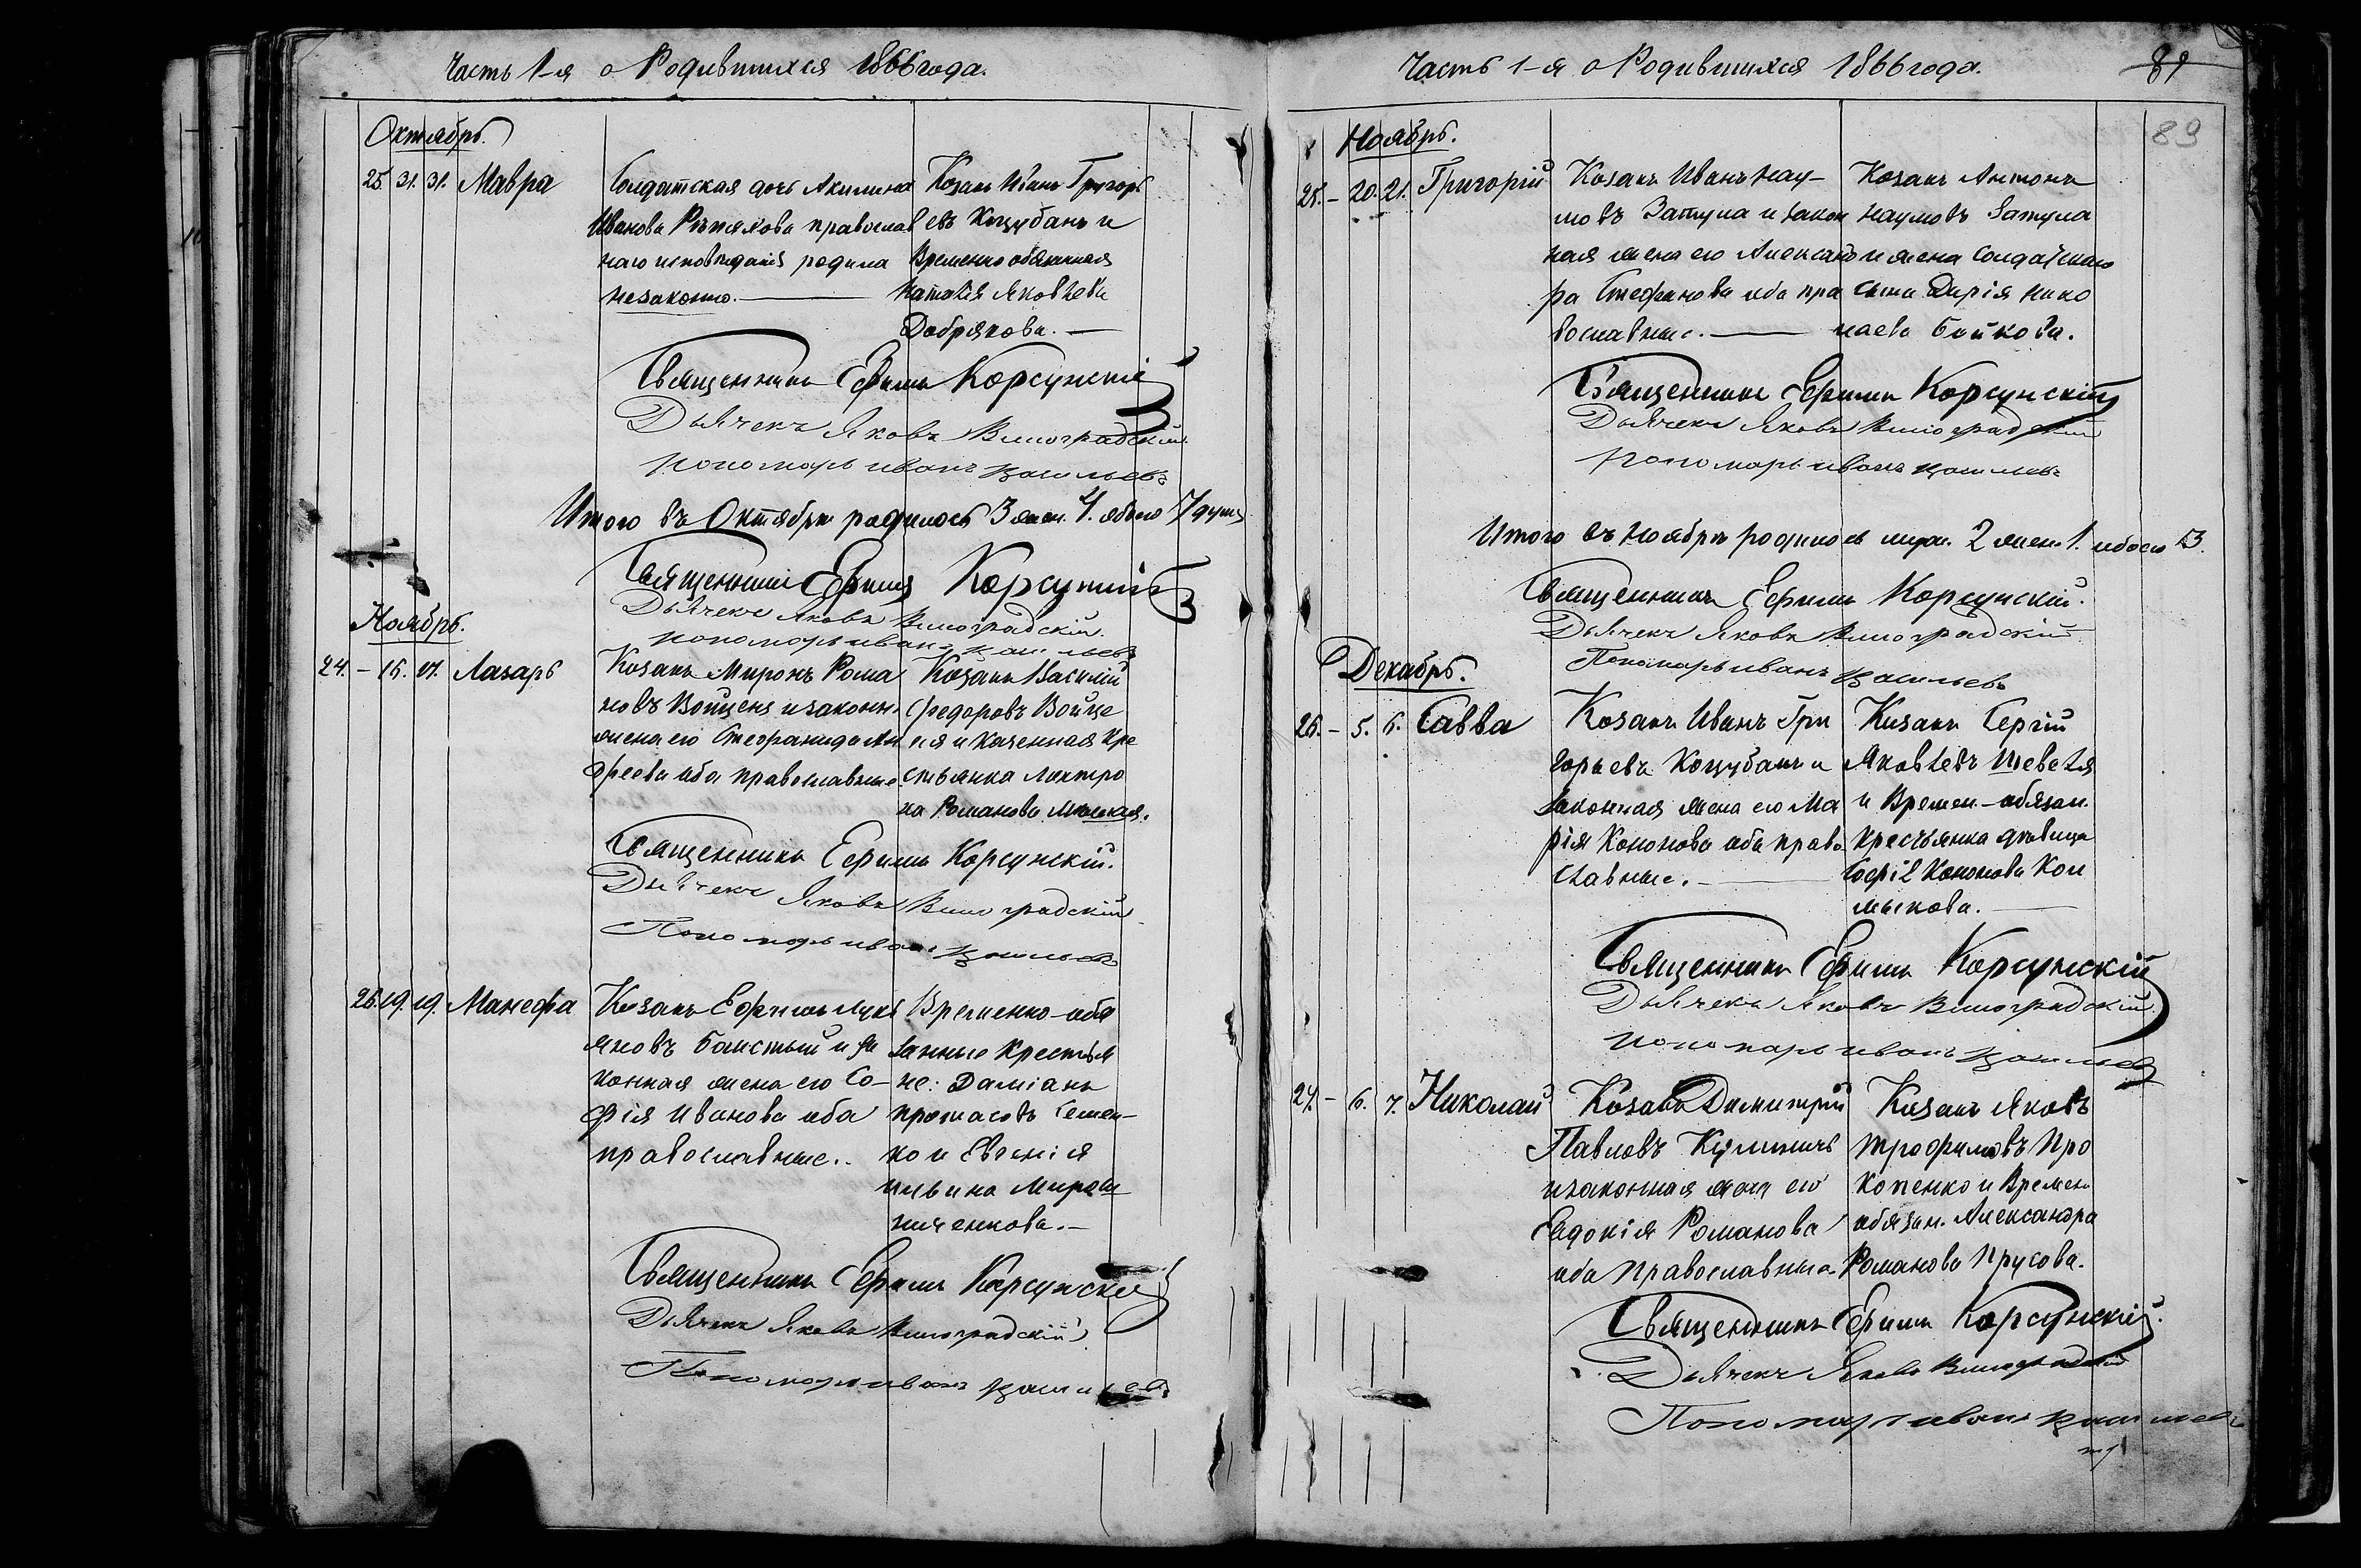 Часть 1-я о Родившихся 1866 года.
Октябрь.
25. 31. 31. Мавра
Солдатская дочь Акилина
Иванова православ
наго исповѣданія родила
незаконно.
Козакъ Иванъ Григорь
евъ Коцубань и
Временно обязанная
Наталія Яковлева
Добрякова.
Священникъ Ефимъ Корсунскій
Дьячекъ Яковъ Виноградскій
Пономарь Иванъ Васильевъ
Итого въ Октябрѣ родилось 3 жен. 4. обоего 7 душъ
Священникъ Ефимъ Корсунскій
Дьячекъ Яковъ Виноградскій.
Пономарь Иванъ Васильевъ
Ноябрь.
24. – 16. 17. Лазарь
Козакъ Миронъ Рома
новъ Войценя и законн.
жена его Стефанида Ан
дреева оба православные
Козакъ Василій
Федоровъ Войце
ня и Казенная кре
стьянка
на Романова
Священникъ Ефимъ Корсунскій.
Дьячекъ Яковъ Виноградскій
Пономарь Иванъ Васильевъ
26. 19. 19. Манефа
Козакъ Ефимъ Лукі
яновъ и за
конная жена его Со–
фія Иванова оба
православные.
Временно–обя
занные крестья
не: Даміанъ
Протасовъ Семен–
ко и Евгенія
Ильина Мирош
ниченкова.–
Священникъ Ефимъ Корсунскій
Дьячекъ Яковъ Виноградскій
Пономарь Иванъ Васильевъ
Часть 1-я о Родившихся 1866 года.
89
89
Ноябрь.
25. – 20. 21. Григорій
Козакъ Иванъ Нау–
мовъ Затула и закон
ная жена его Александ
ра Стефанова оба пра
вославные.
Козакъ Антонъ
Наумовъ Затула
и жена солдатскаго
сына Дарія Нико
лаева Бойкова.
Священникъ Ефимъ Корсунскій
Дьячекъ Яковъ Виноградскій
Пономарь Иванъ Васильевъ
Итого въ Ноябрѣ родилось муж. 2 жен. 1. обоего 3.
Священникъ Ефимъ Корсунскій.
Дьячекъ Яковъ Виноградскій
Пономарь Иванъ Васильевъ
Декабрь.
26. – 5. 6. Савва
Козакъ Иванъ Гри
горьевъ Коцубань и
законная жена его Ма
рія Кононова оба право
славные.
Козакъ Сергій
Яковлевъ Шевеля
и Времен.–обязан.
крестьянка дѣвица
Софія Кононова Кол
мыкова.
Священникъ Ефимъ Корсунскій
Дьячекъ Яковъ Виноградскій
Пономарь Иванъ Васильевъ
27. – 6. 7. Николай
Козакъ Димитрій
Павловъ Кулиничь
и законная жена его
Евдокія Романова
оба православные.
Козакъ Яковъ
Трофимовъ Про
копенко и Времен.
обязан. Александра
Романова Прусова.
Священникъ Ефимъ Корсунскій.
Дьячекъ Яковъ Виноградскій
Пономарь Иванъ Васильевъ